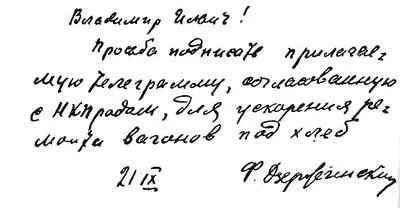 Владимир Ильич!
Просьба подписать прилагае-
мую телеграмму, согласованную
с НКПродом, для ускорения ре-
монта вагонов под хлеб
21 IX Ф. Дзержинский